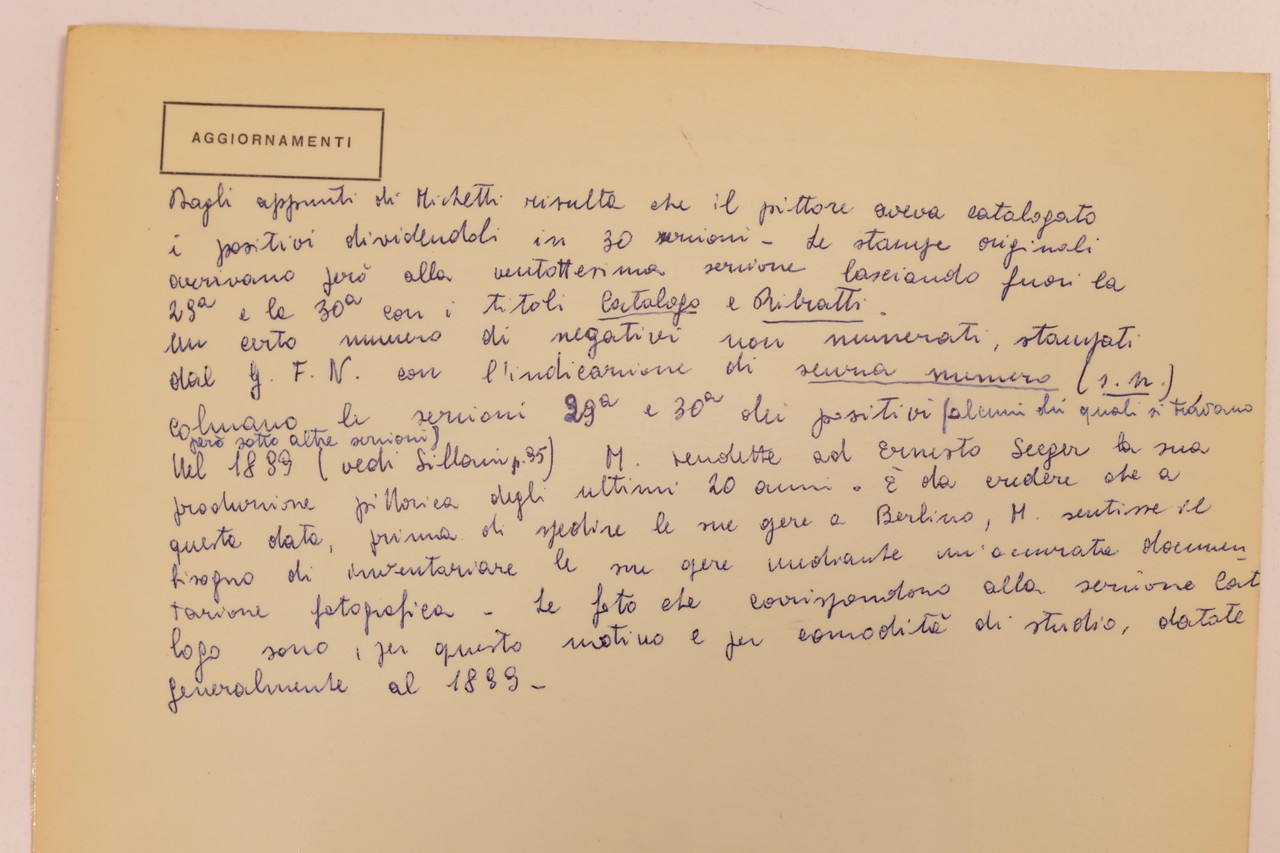 AGGIORNAMENTI
Dagli appunti di Michetti risulta che il pittore aveva catalogato
i positivi dividendoli in 30 sezioni - Le stampe originali
arrivano però alla ventottesima sezione lasciando fuori la
29ª e la 30ª con i titoli Catalogo e Ritratti.
Un certo numero di negativi non numerati, stampati
dal G. F. N. con l'indicazione di senza numero (s.n.)
colmano le sezioni 29ª e 30ª dei positivi (alcuni dei quali si trovano
però sotto altre sezioni)
Nel 1899 (vedi Sillani p.95) M. vendette ad Ernesto Seeger la sua
produzione pittorica degli ultimi 20 anni. È da credere che a
questa data, prima di spedire le sue opere a Berlino, M. sentisse il
bisogno di inventariare le sue opere mediante un'accurata documen
tazione fotografica - Le foto che corrispondono alla sezione Cat
logo sono, per questo motivo e per comodità di studio, datate
generalmente al 1899 -